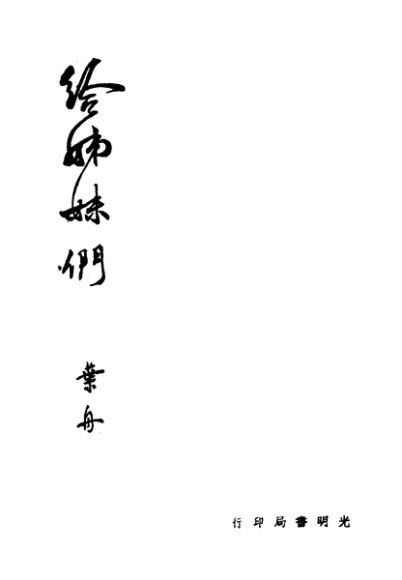 給姊妹們
葉舟
光明書局印行